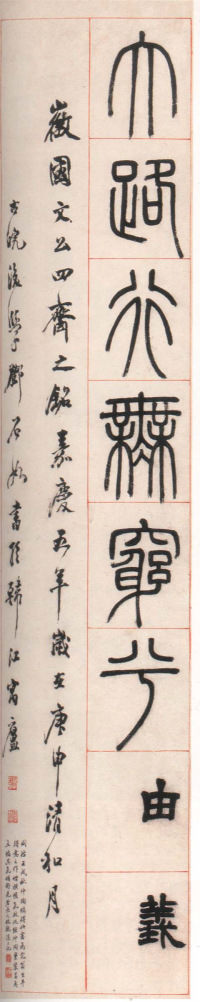 大路行無窮兮 由義
徽國文公四齋之銘嘉慶五年歲在庚申清和月
古浣後學鄧石如書於韓江寓廬